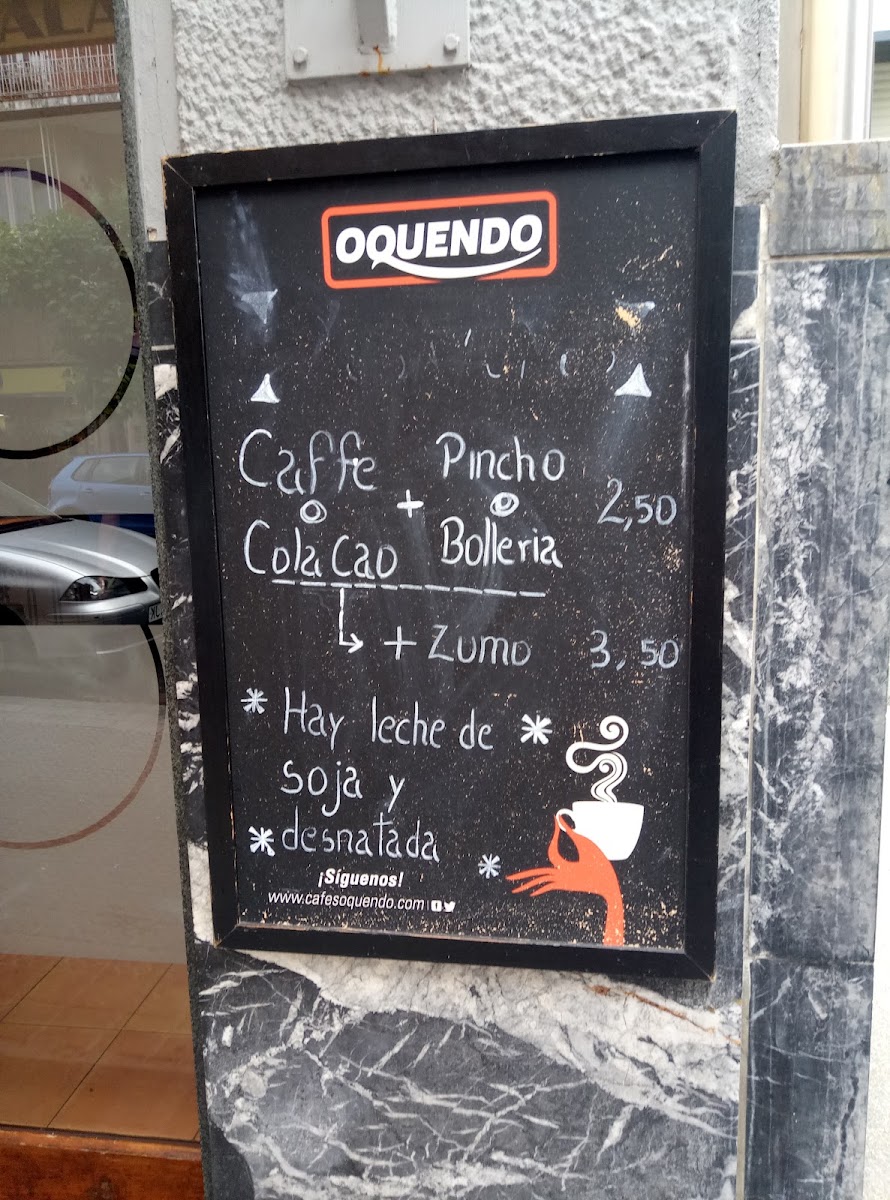 OQUENDO
Caffe
o
Cola Cao
+
Pincho
o
Bolleria
2,50
+ Zumo 3,50
* Hay leche de *
soja y
* desnatada
*
¡Síguenos!
www.cafesoquendo.com